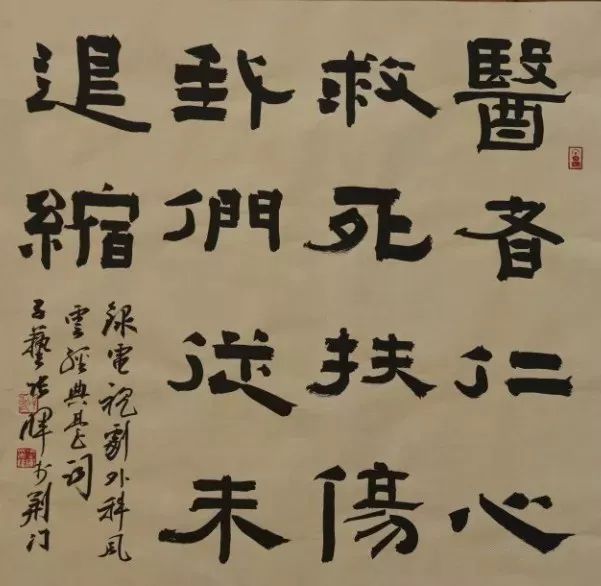 醫者仁心
救死扶傷
我們從未
退縮
錄電視劇外科風
雲經典臺詞
藝張於荆门